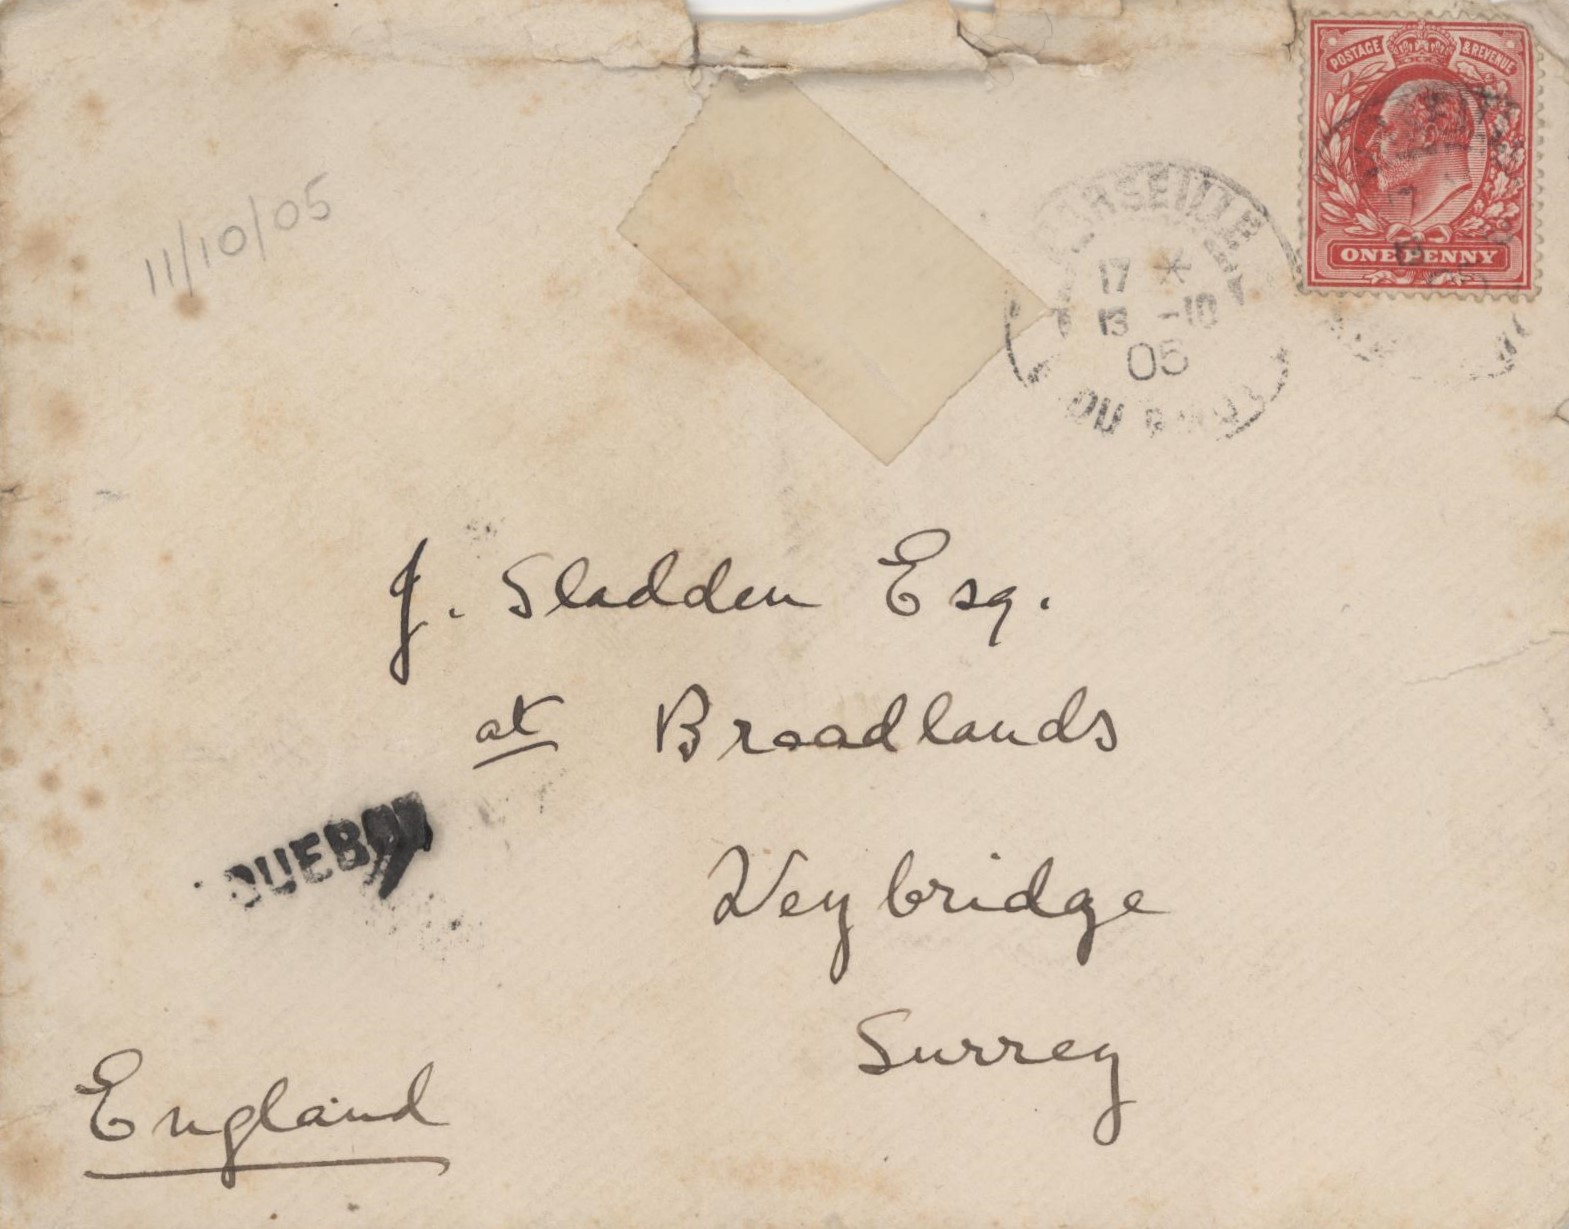 POSTAGE & REVENUE
ONE PENNY
11/10/05
MARSEILLE
17 *
13 -10
05
DU
J. Sladden Esq.
at Broadlands
Weybridge
Surrey
England